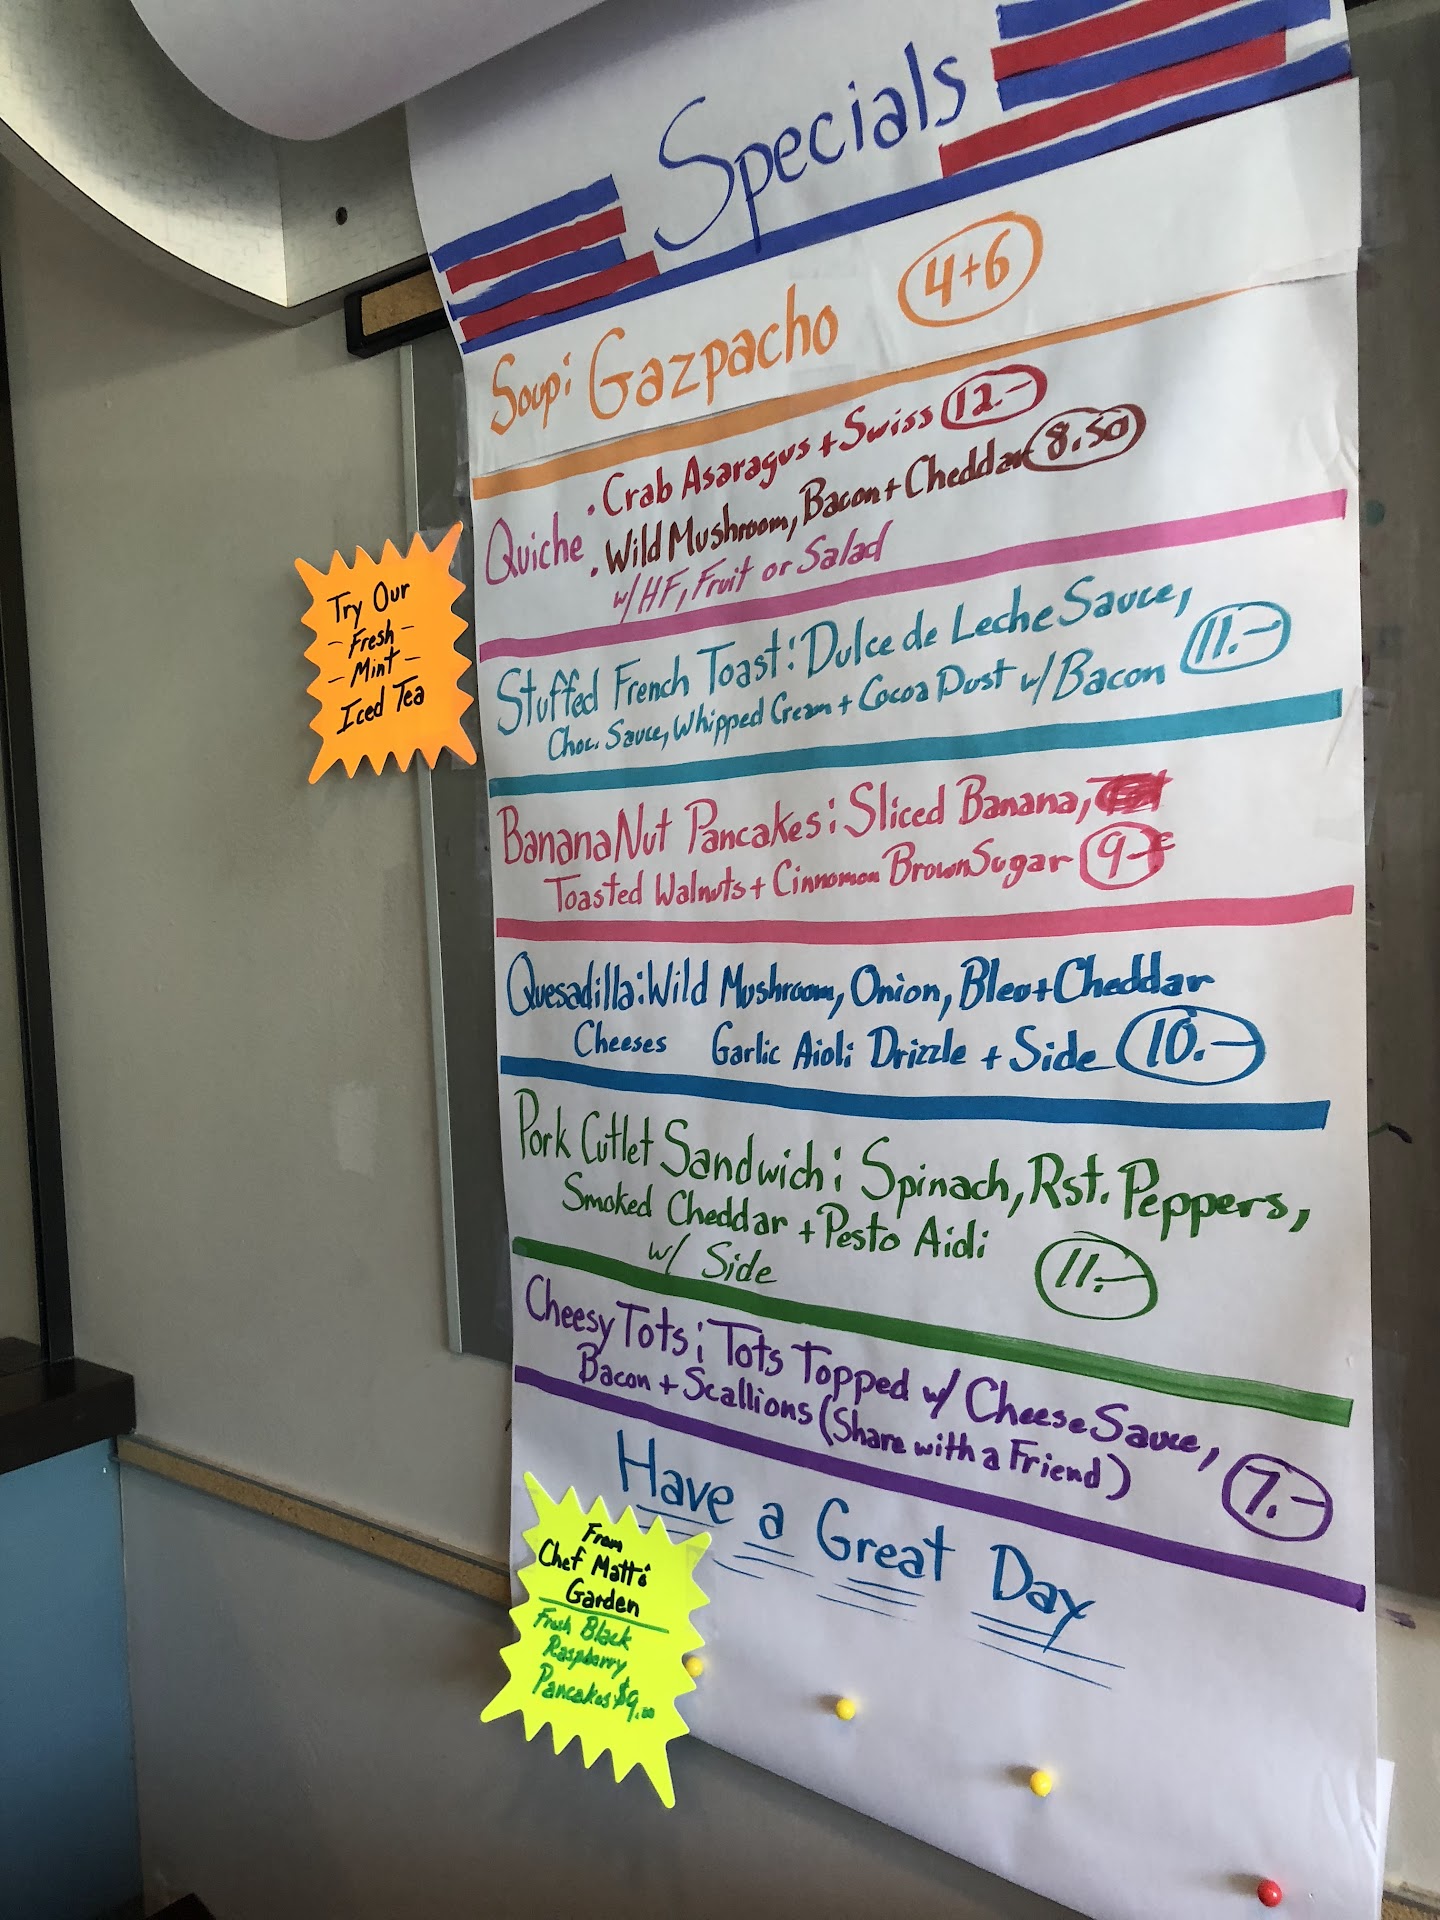 Specials
Soup: Gazpacho 4+6
Quiche
. Crab Asaragus + Swiss 12.-
. Wild Mushroom, Bacon + Cheddar 8.50
w/ HF, Fruit or Salad
Stuffed French Toast: Dulce de Leche Sauce,
Choc. Sauce, Whipped Cream + Cocoa Dust w/ Bacon 11.-
Banana Nut Pancakes: Sliced Banana,
Toasted Walnuts + Cinnamon Brown Sugar 9-
Quesadilla: Wild Mushroom, Onion, Bleu + Cheddar
Cheeses Garlic Aioli Drizzle + Side 10.-
Pork Cutlet Sandwich: Spinach, Rst. Peppers,
Smoked Cheddar + Pesto Aioli
w/ Side 11.-
Cheesy Tots: Tots Topped w/ Cheese Sauce,
Bacon + Scallions (Share with a Friend) 7.-
Have a Great Day
Try Our
- Fresh -
- Mint -
Iced Tea
From
Chef Matt's
Garden
Fresh Black
Raspberry
Pancakes $9.00